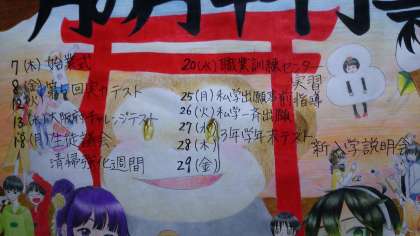 7(木)始業式
8(金)第1回実力テスト
12(火)
13(水)大阪府チャレンジテスト
18(月)生徒議会
清掃強化週間
20(水)職業訓練センター
実習
25(月)私学出願事前指導
26(火)私学一斉出願
27(水)
28(木)3年学年末テスト
29(金)
新入学説明会